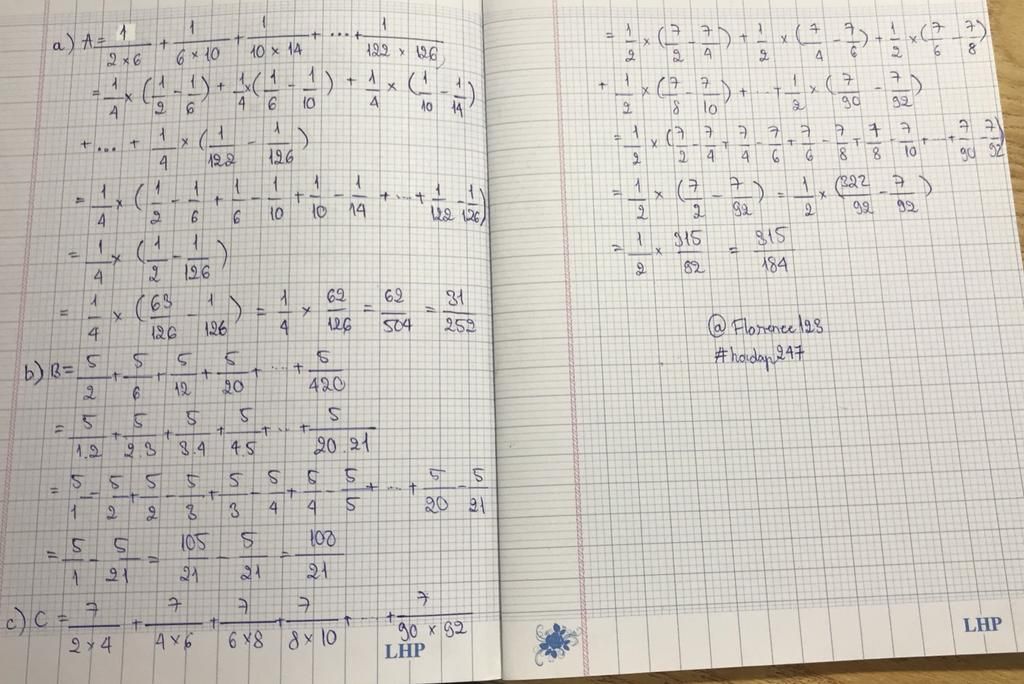 a) A = 1/(2×6) + 1/(6×10) + 1/(10×14) + ... + 1/(122×126)
= 1/4 × (1/2 - 1/6) + 1/4 × (1/6 - 1/10) + 1/4 × (1/10 - 1/14)
+ ... + 1/4 × (1/122 - 1/126)
= 1/4 × (1/2 - 1/6 + 1/6 - 1/10 + 1/10 - 1/14 + ... + 1/122 - 1/126)
= 1/4 × (1/2 - 1/126)
= 1/4 × (63/126 - 1/126) = 1/4 × 62/126 = 62/504 = 31/252
b) B = 5/2 + 5/6 + 5/12 + 5/20 + ... + 5/420
= 5/1.2 + 5/2.3 + 5/3.4 + 5/4.5 + ... + 5/20.21
= 5/1 - 5/2 + 5/2 - 5/3 + 5/3 - 5/4 + 5/4 - 5/5 + ... + 5/20 - 5/21
= 5/1 - 5/21 = 105/21 - 5/21 = 100/21
c) C = 7/(2×4) + 7/(4×6) + 7/(6×8) + 7/(8×10) + ... + 7/(90×92)
LHP
= 1/2 × (7/2 - 7/4) + 1/2 × (7/4 - 7/6) + 1/2 × (7/6 - 7/8)
+ 1/2 × (7/8 - 7/10) + ... + 1/2 × (7/90 - 7/92)
= 1/2 × (7/2 - 7/4 + 7/4 - 7/6 + 7/6 - 7/8 + 7/8 - 7/10 + ... + 7/90 - 7/92)
= 1/2 × (7/2 - 7/92) = 1/2 × (322/92 - 7/92)
= 1/2 × 315/92 = 315/184
@ Florence123
#hoidap247
LHP